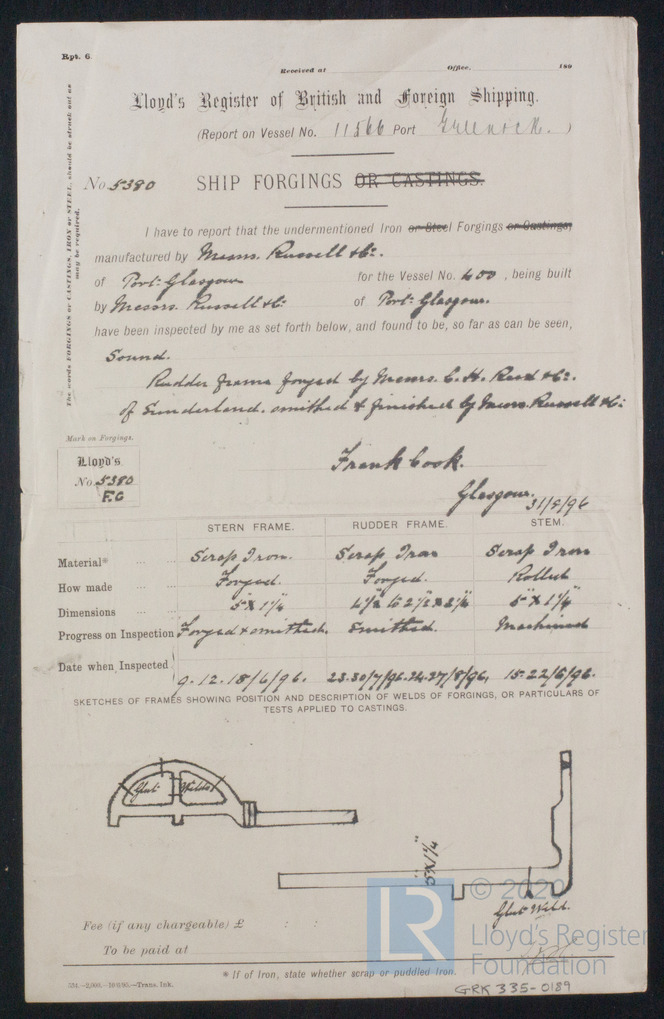 Rpt. 6.
Received at Office. 189
Lloyd's Register of British and Foreign Shipping.
(Report on Vessel No. 11566 Port Greenock. )
No. 5380 SHIP FORGINGS OR CASTINGS.
The words FORGINGS or CASTINGS, IRON or STEEL, should be struck out as
may be required.
I have to report that the undermentioned Iron or Steel Forgings or Castings,
manufactured by Messrs. Russell & Co.
of Port-Glasgow for the Vessel No. 400 , being built
by Messrs. Russell & Co. of Port-Glasgow.
have been inspected by me as set forth below, and found to be, so far as can be seen,
Sound.
Rudder frame forged by Messrs. C. H. & Co.
of Sunderland. smithed & finished by Messrs. Russell & Co.
Mark on Forgings.
Lloyd's.
No. 5380
F.C
Frank Cook.
Glasgow. 31/8/96
STERN FRAME. RUDDER FRAME. STEM.
Material* ... ... Scrap Iron. Scrap Iron Scrap Iron
How made ... ... Forged. Forged. Rolled
Dimensions ... ... 5" x 1 1/4
Progress on Inspection Forged & smithed. Smithed. Machined
Date when Inspected 9. 12. 18/6/96. 23. 30/7/96. 24. 27/8/96. 15. 22/6/96.
SKETCHES OF FRAMES SHOWING POSITION AND DESCRIPTION OF WELDS OF FORGINGS, OR PARTICULARS OF
TESTS APPLIED TO CASTINGS.
Glut Welds
5" x 1 1/4"
Glut Weld.
Fee (if any chargeable) £ : :
To be paid at
* If of Iron, state whether scrap or puddled iron.
GRK 335-0189
LR
© 2020
Lloyd's Register
Foundation